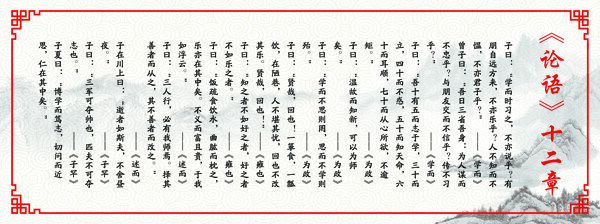 《论语》十二章
子曰："学而时习之，不亦说乎？有
朋自远方来，不亦乐乎？人不知而不
愠，不亦君子乎？" ——《学而》
曾子曰："吾日三省吾身：为人谋而
不忠乎？与朋友交而不信乎？传不习
乎？" ——《学而》
子曰："吾十有五而志于学，三十而
立，四十而不惑，五十而知天命，六
十而耳顺，七十而从心所欲，不逾
矩。" ——《为政》
子曰："温故而知新，可以为师
矣。" ——《为政》
子曰："学而不思则罔，思而不学则
殆。" ——《为政》
子曰："贤哉，回也！一箪食，一瓢
饮，在陋巷，人不堪其忧，回也不改
其乐。贤哉，回也！" ——《雍也》
子曰："知之者不如好之者，好之者
不如乐之者。" ——《雍也》
子曰："饭疏食饮水，曲肱而枕之，
乐亦在其中矣。不义而富且贵，于我
如浮云。" ——《述而》
子曰："三人行，必有我师焉。择其
善者而从之，其不善者而改之。"
——《述而》
子在川上曰："逝者如斯夫，不舍昼
夜。" ——《子罕》
子曰："三军可夺帅也，匹夫不可夺
志也。" ——《子罕》
子夏曰："博学而笃志，切问而近
思，仁在其中矣。"